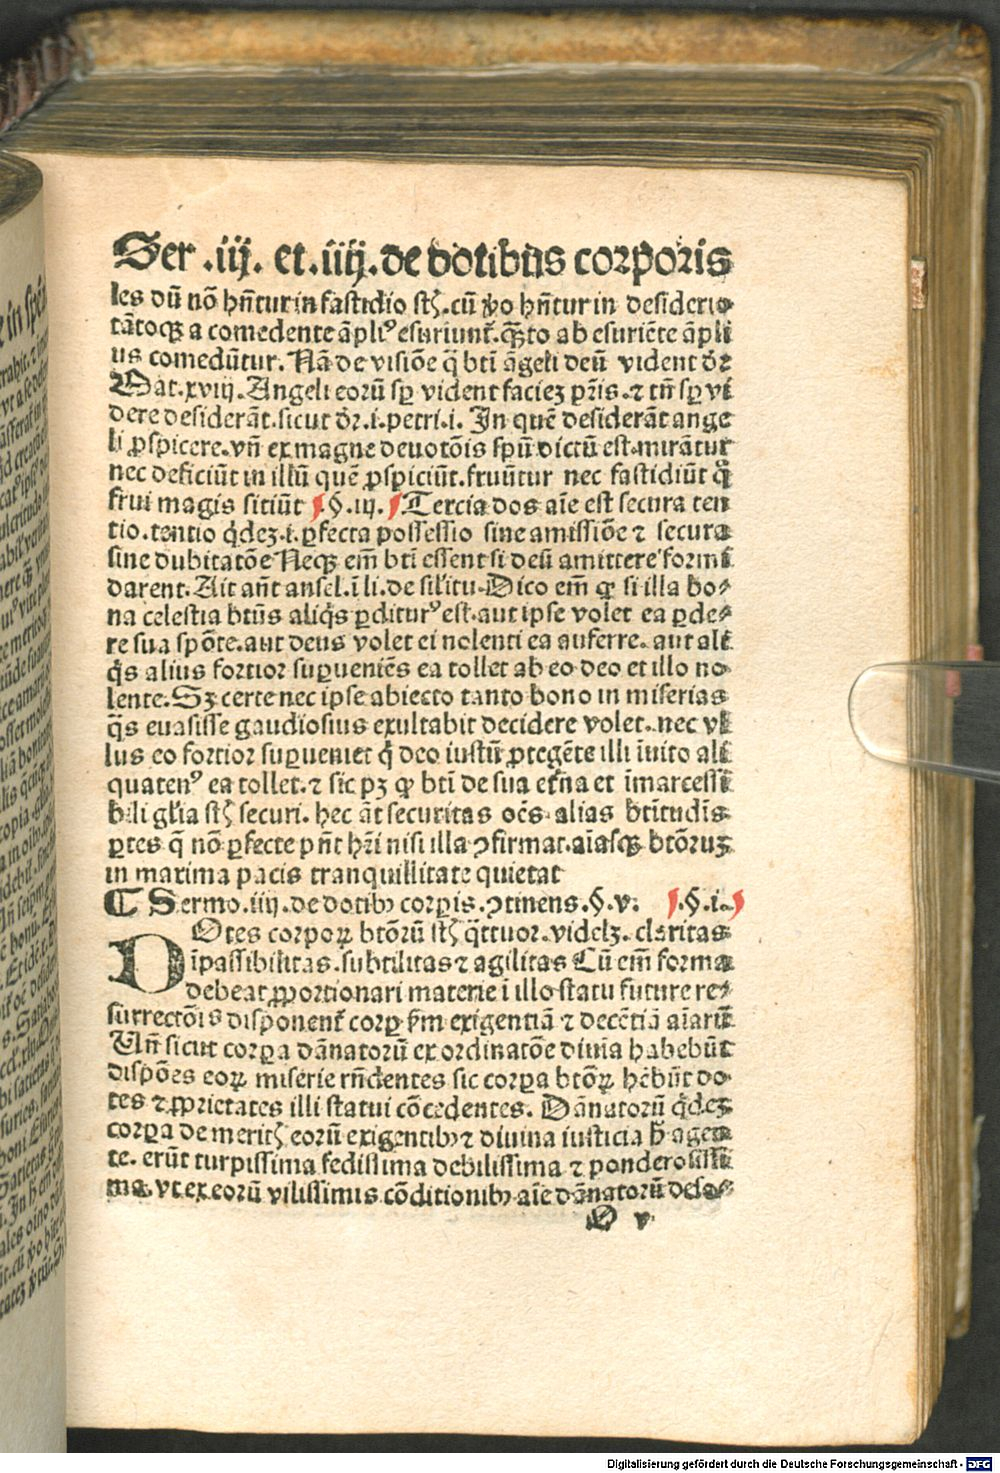 Ser .iij. et .iiij. de dotibus corporis
les dū nō hn̄tur in fastidio sūt. cū ꝟo hn̄tur in desiderio
tātoqꝫ a comedente āpliꝰ esuriunt̄. q̄ꝫto ab esuriēte āpli
us comedūtur. Nā de visiōe q̄ bt̄i āgeli deū vident dr̄
Mat. xviij. Angeli eorū sꝑ vident faciez pr̄is. ⁊ tn̄ sꝑ vi
dere desiderāt. sicut dr̄ .i. petri .i. In quē desiderāt ange
li ꝓspicere. vn̄ ex magne deuotōis spū dictū est. mirātur
nec deficiūt in illū quē ꝓspiciūt. fruūtur nec fastidiūt qͥ
frui magis sitiūt .§. iij. Tercia dos aīe est secura ten
tio. tentio qͥdez .i. ꝑfecta possessio sine amissiōe ⁊ secura
sine dubitatōe Neqꝫ em̄ bt̄i essent si deū amittere formi
darent. Ait aūt ansel. ī li. de silitu. Dico em̄ ꝙ si illa bo⸗
na celestia bt̄us aliqͥs ꝑditurꝰ est. aut ipse volet ea ꝑde⸗
re sua spōte. aut deus volet ei nolenti ea auferre. aut ali
qͥs alius fortior suꝑueniēs ea tollet ab eo deo et illo no⸗
lente. Sꝫ certe nec ipse abiecto tanto bono in miserias
qͣs euasisse gaudiosius exultabit decidere volet. nec vl
lus eo fortior suꝑueniet qͥ deo iustū ꝓtegēte illi īuito ali
quatenꝰ ea tollet. ⁊ sic pꝫ ꝙ bt̄i de sua et̄na et īmarcessi
bili gl̄ia sūt securi. hec āt securitas oēs alias bt̄itudīs
ꝑtes q̄ nō ꝑfecte pn̄t hr̄i nisi illa ꝯfirmat. aīasqꝫ bt̄ōruꝫ
in maxima pacis tranquillitate quietat
¶ Sermo .iiij. de dotibꝰ corꝑis. ꝯtinens .§. v. .§. i.
DOtes corpoꝝ bt̄ōrū sūt q̄ttuor. videlꝫ. claritas
īpassibilitas. subtilitas ⁊ agilitas Cū em̄ forma
debeat ꝓportionari materie ī illo statu future re⸗
surrectōis disponent̄ corꝑa ẜm exigentiā ⁊ decētiā aīarū
Vn̄ sicut corꝑa dānatorū ex ordinatōe diuīa habebūt
dispōes eoꝝ miserie rn̄dentes sic corꝑa bt̄ōꝝ hēbūt do⸗
tes ⁊ ꝓprietates illi statui cōcedentes. Dānatorū qͥdez
corꝑa demeritis eorū exigentibꝰ ⁊ diuina iusticia h̄ agen
te. erūt turpissima fedissima debilissima ⁊ ponderosissi
ma. vt ex eorū vilissimis cōditionibꝰ aīe dānatorū
O v
Digitalisierung gefördert durch die Deutsche Forschungsgemeinschaft - DFG